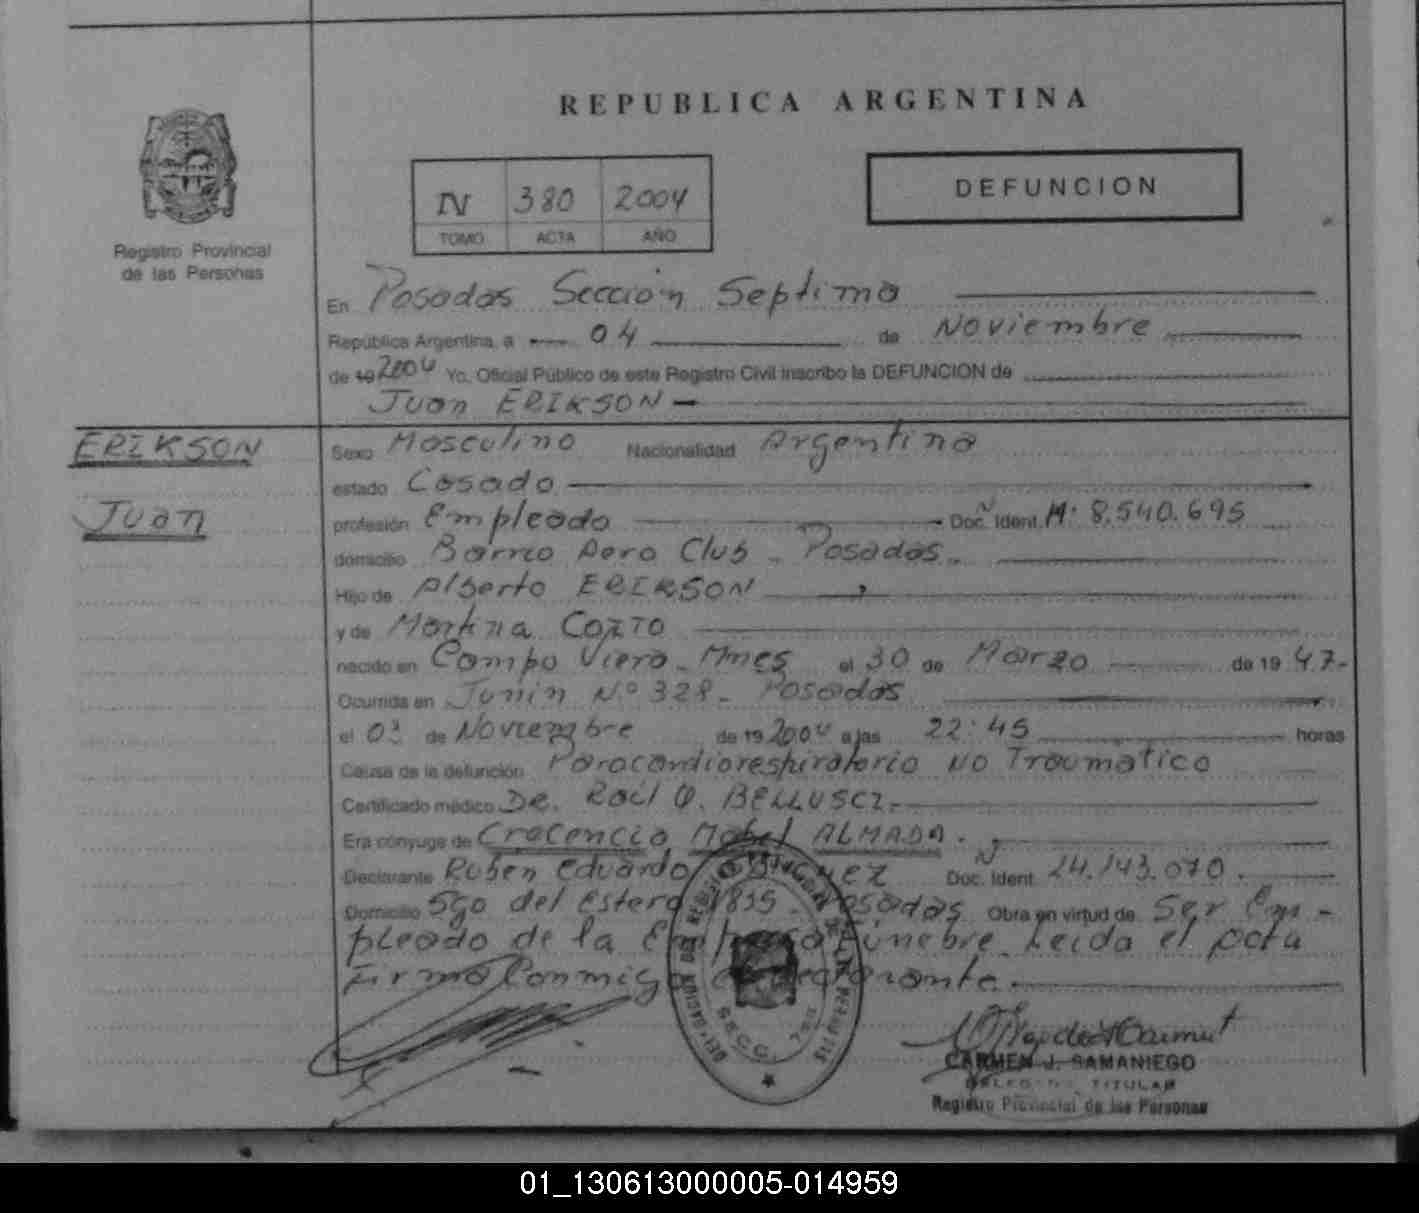 REPUBLICA ARGENTINA
IV 380 2004
TOMO ACTA AÑO
DEFUNCION
Registro Provincial
de las Personas
En Posadas Sección Septima
República Argentina, a 04 de Noviembre
de 19 2004 Yo, Oficial Público de este Registro Civil inscribo la DEFUNCION de
Juan ERIKSON
ERIKSON
Juan
Sexo Masculino Nacionalidad Argentina
estado Casado
profesión Empleado Doc. Ident. Nº M: 8.540.695
domicilio Barrio Aero Club - Posadas
Hijo de Alberto ERIKSON
y de Martina
nacido en Campo Viera - Mnes el 30 de Marzo de 19 47-
Ocurrida en Junin Nº 328 - Posadas
el 03 de Noviembre de 19 2004 a las 22:45 horas
Causa de la defunción Parocardiorespiratorio NO Traumatico
Certificado médico DR. Raul O. BELLUSCI
Era cónyuge de Crecencia Mabel ALMADA
Declarante Ruben Eduardo Doc. Ident. Nº 24.143.070
Domicilio Sgo del Estero 1835 - Posadas Obra en virtud de Ser Em-
pleado de la Empresa Fúnebre. Leida el acta
Firma Conmigo el declarante
CARMEN J. SAMANIEGO
DELEGADA TITULAR
Registro Provincial de las Personas
01_130613000005-014959